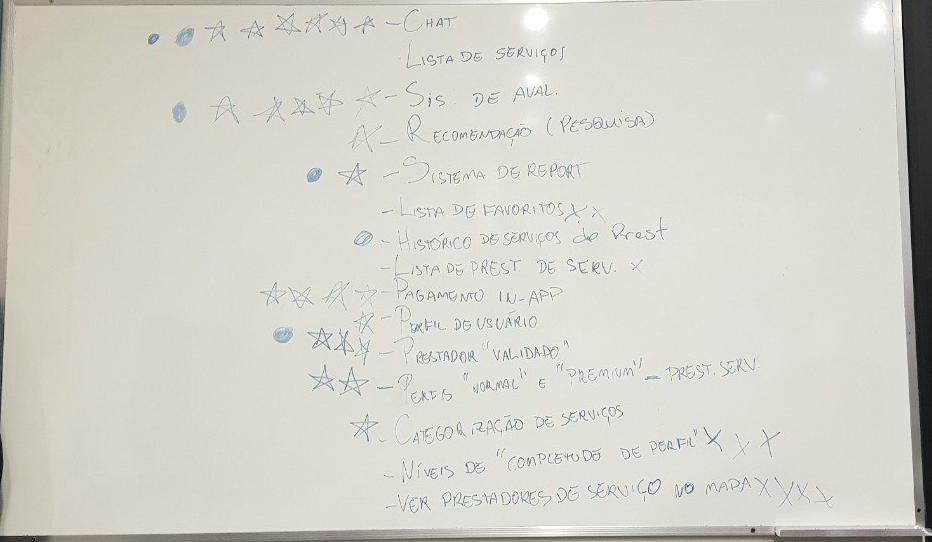 - CHAT
LISTA DE SERVIÇOS
- SIS. DE AVAL.
- RECOMENDAÇÃO (PESQUISA)
- SISTEMA DE REPORT
- LISTA DE FAVORITOS X X
- HISTÓRICO DE SERVIÇOS do Prest
- LISTA DE PREST. DE SERV. X
- PAGAMENTO IN-APP
- PERFIL DE USUÁRIO
- PRESTADOR "VALIDADO"
- PERFIS "NORMAL" E "PREMIUM" - PREST. SERV.
- CATEGORIZAÇÃO DE SERVIÇOS
- NÍVEIS DE "COMPLETUDE DE PERFIL" X X X
- VER PRESTADORES DE SERVIÇO NO MAPA X X X X